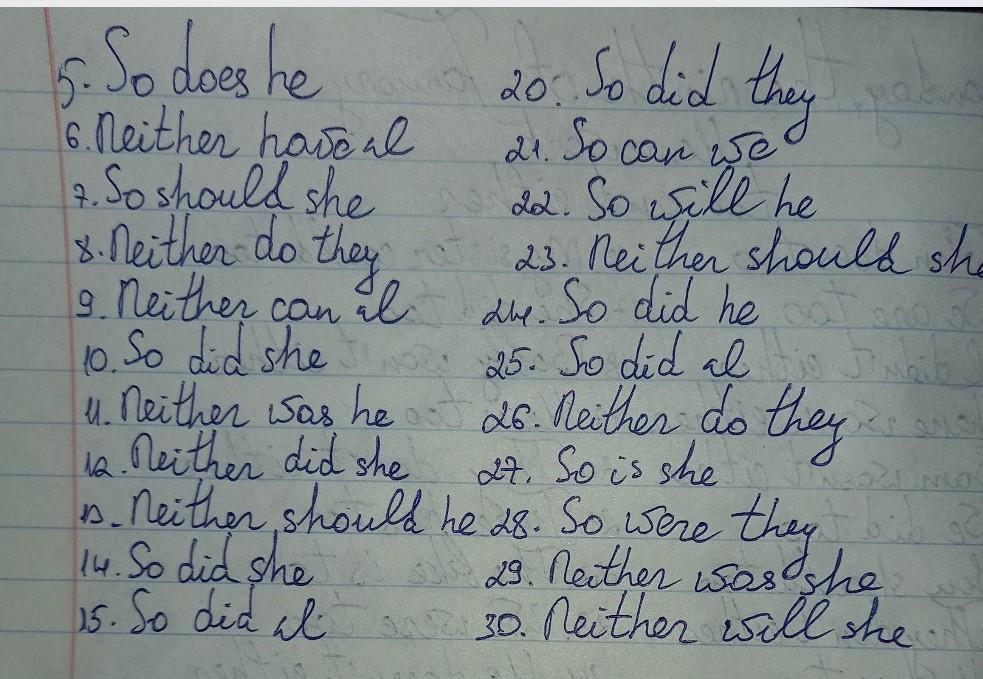 5. So does he
6. Neither have I
7. So should she
8. Neither do they
9. Neither can I
10. So did she
11. Neither was he
12. Neither did she
13. Neither should he
14. So did she
15. So did I
20. So did they
21. So can we
22. So will he
23. Neither should she
24. So did he
25. So did I
26. Neither do they
27. So is she
28. So were they
29. Neither was she
30. Neither will she